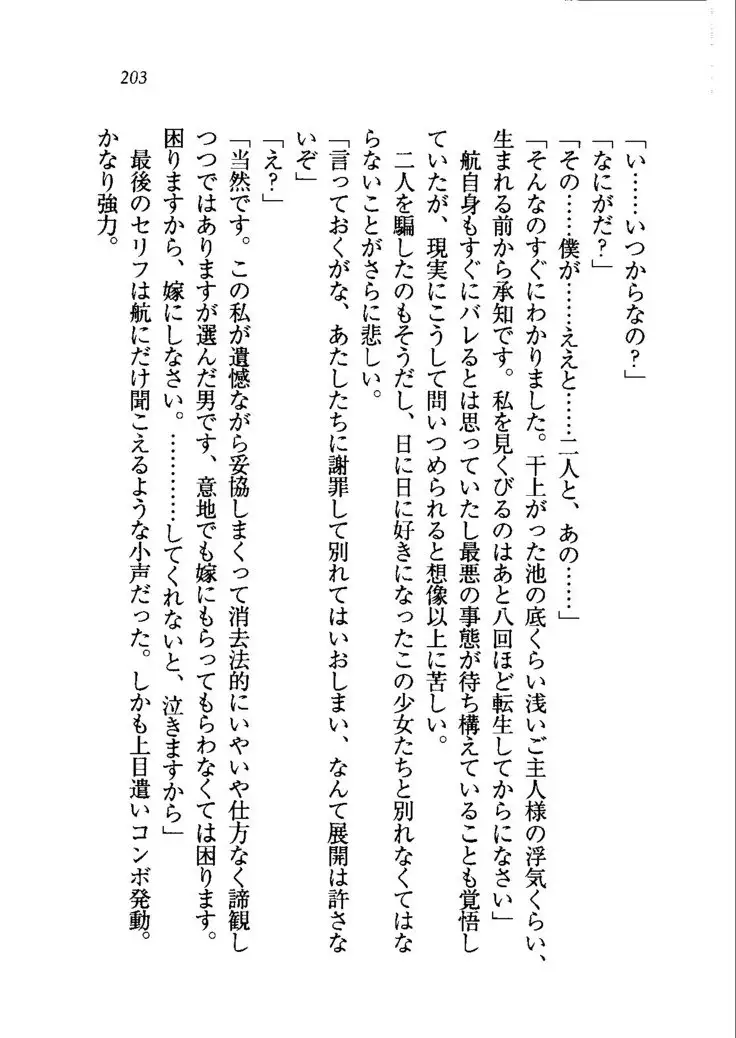 203
「い……いつからなの？」
「なにがだ？」
「その……僕が……ええと……二人と、あの……」
「そんなのすぐにわかりました。干上がった池の底くらい浅いご主人様の浮気くらい、
生まれる前から承知です。私を見くびるのはあと八回ほど転生してからになさい」
航自身もすぐにバレるとは思っていたし最悪の事態が待ち構えていることも覚悟し
ていたが、現実にこうして問いつめられると想像以上に苦しい。
二人を騙したのもそうだし、日に日に好きになったこの少女たちと別れなくてはな
らないことがさらに悲しい。
「言っておくがな、あたしたちに謝罪して別れてはいおしまい、なんて展開は許さな
いぞ」
「え？」
「当然です。この私が遺憾ながら妥協しまくって消去法的にいやいや仕方なく諦観し
つつではありますが選んだ男です、意地でも嫁にもらってもらわなくては困ります。
困りますから、嫁にしなさい。…………してくれないと、泣きますから」
最後のセリフは航にだけ聞こえるような小声だった。しかも上目遣いコンボ発動。
かなり強力。